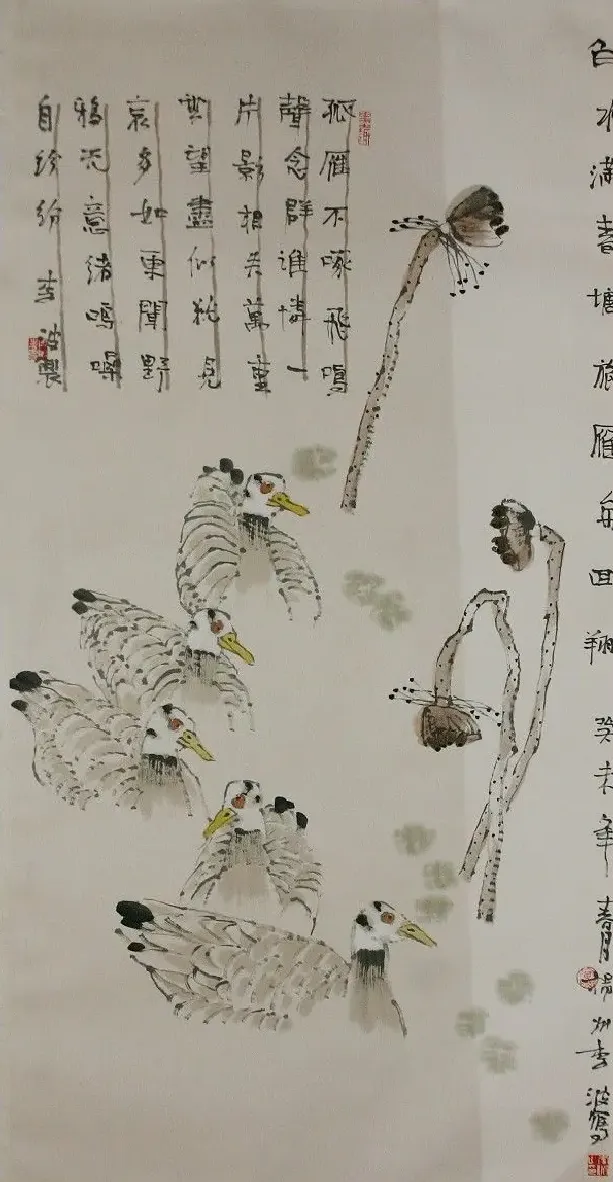 白水滿春塘旅雁每回翔 癸未年春月揚州李波寫
孤雁不啄飛鳴
聲念群誰憐一
片影相失萬重
雲望盡似犹見
哀多如更聞野
鴉无意緒鳴噪
自紛紛 李波製